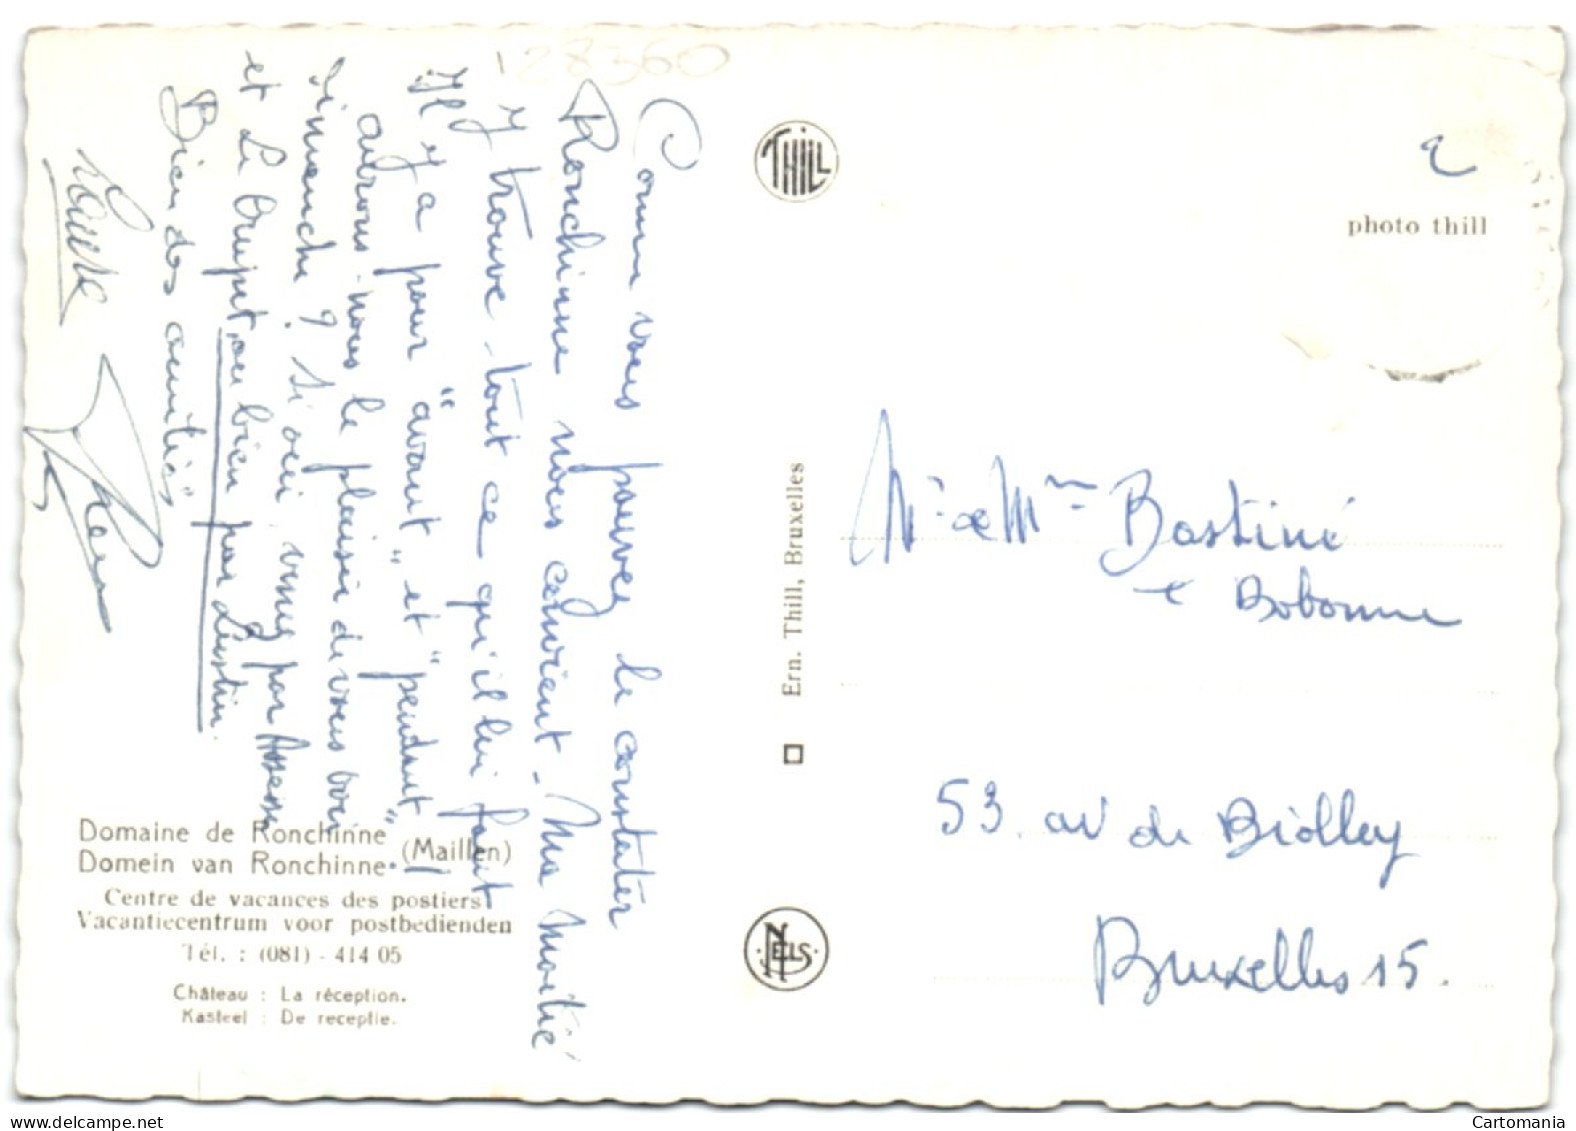 128360
Comme vous pouvez le constater
Ronchinne nous convient. Ma moitié
y trouve tout ce qu'il lui faut
Il y a pour "avant" et "pendant"
aurons-nous le plaisir de vous voir
Dimanche ? Si oui, venez par Assesse
et Le Trupet, ou bien par Lustin.
Bien des amitiés,
THILL
photo thill
Mr & Mme Bastiné
e Bobonne
53. av de Biolley
Bruxelles 15.
Ern. Thill, Bruxelles
NELS
Domaine de Ronchinne (Maillen)
Domein van Ronchinne
Centre de vacances des postiers
Vacantiecentrum voor postbedienden
Tél. : (081) - 414 05
Château : La réception.
Kasteel : De receptie.
Cartomania